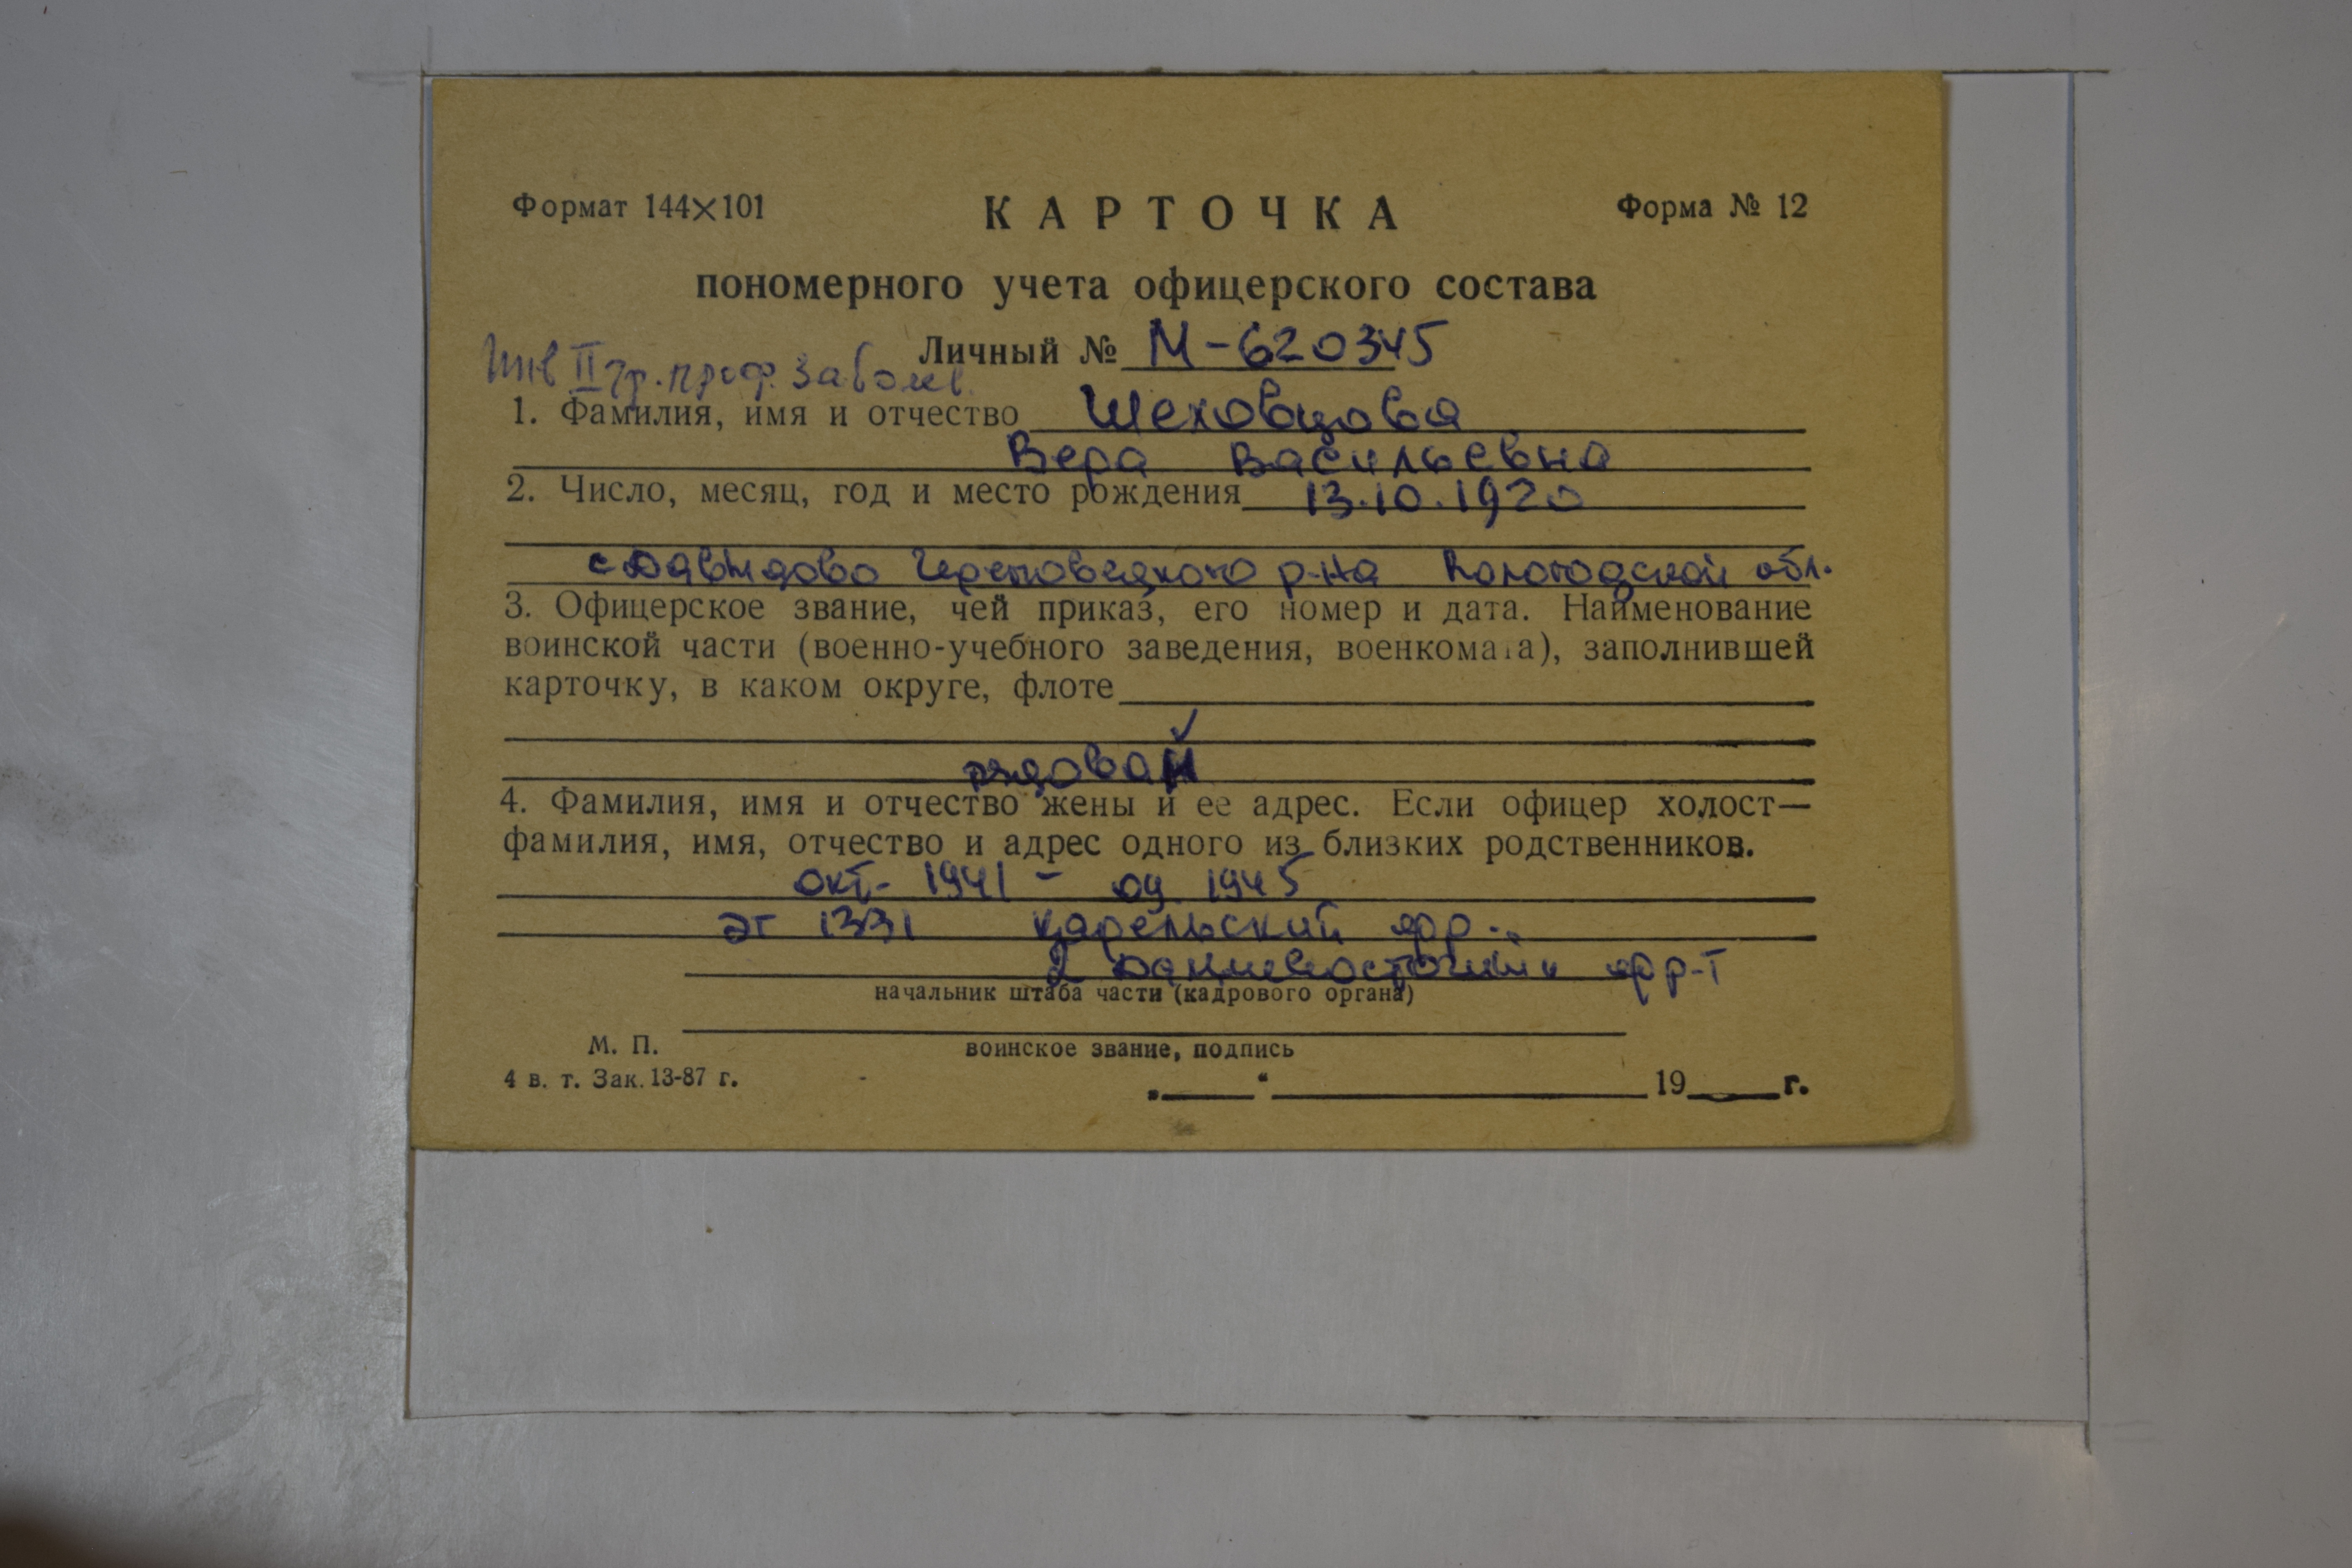 Формат 144×101 КАРТОЧКА Форма № 12
пономерного учета офицерского состава
Личный № М-620345
Инв II гр. проф. забол.
1. Фамилия, имя и отчество Шеховцова
Вера Васильевна
2. Число, месяц, год и место рождения 13.10.1920
с Давыдово Череповецкого р-на Вологодской обл.
3. Офицерское звание, чей приказ, его номер и дата. Наименование
воинской части (военно-учебного заведения, военкомата), заполнившей
карточку, в каком округе, флоте
рядовой
4. Фамилия, имя и отчество жены и ее адрес. Если офицер холост—
фамилия, имя, отчество и адрес одного из близких родственников.
окт- 1941 - 09 1945
эг 1331 Карельский фр..
2 фр-т
начальник штаба части (кадрового органа)
воинское звание, подпись
М. П.
4 в. т. Зак. 13-87 г.
„ “ 19 г.